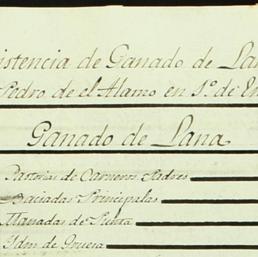 istencia de Ganado de La
Pedro de el Alamo en 1º de
Ganado de Lana
Pastorias de Carneros Padres
Baciadas Principalas
Manadas de Punta
Idm de Gruesa